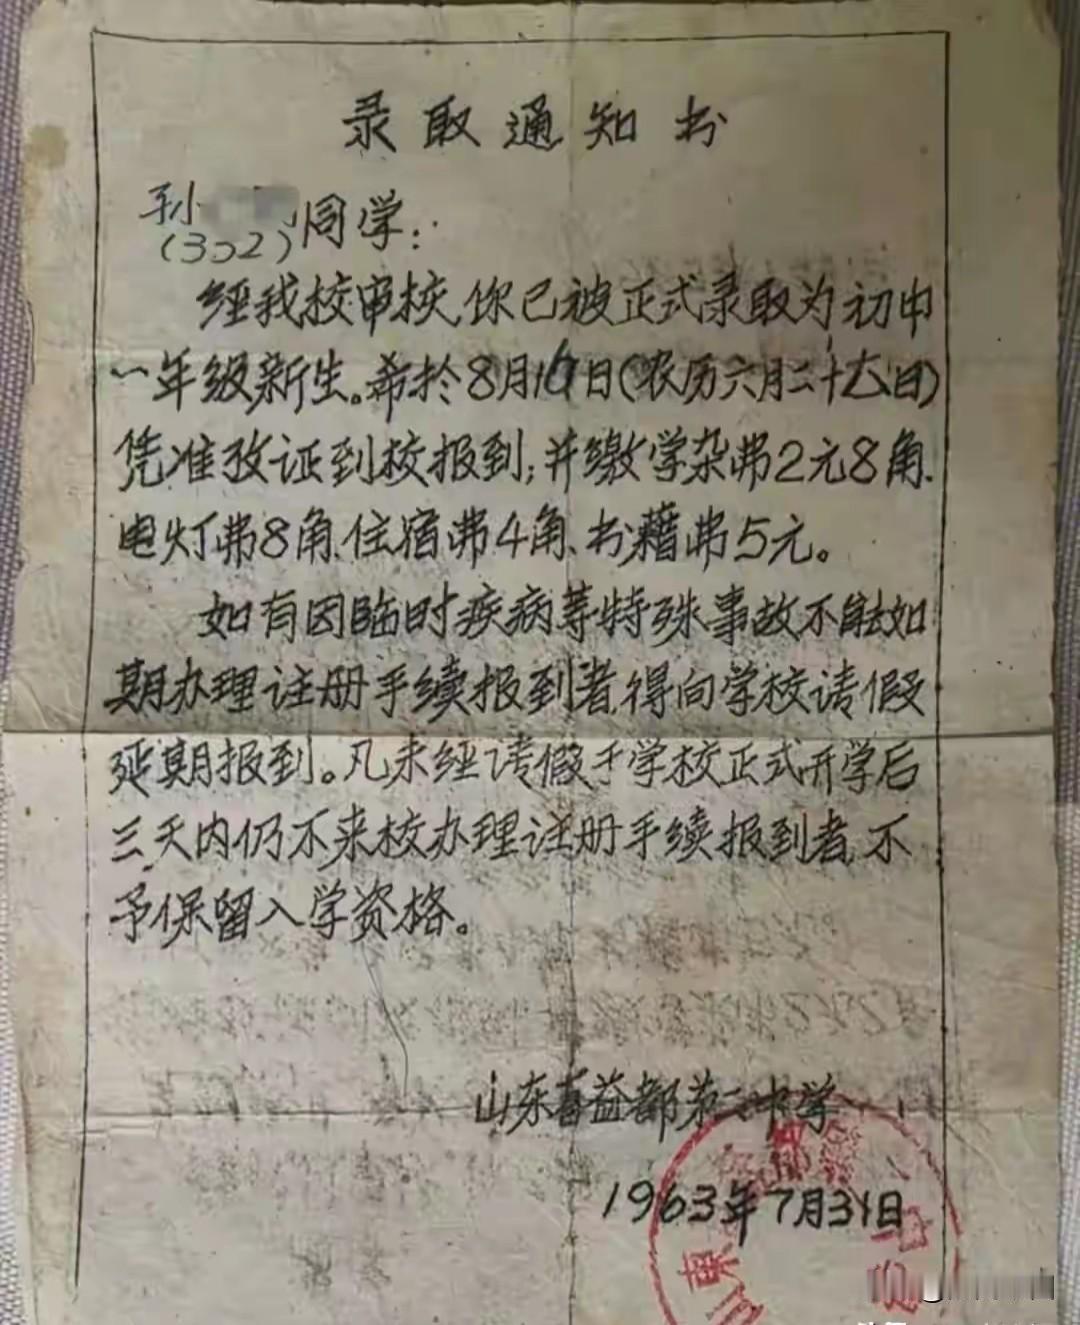 录取通知书
孙 同学：
(302)
经我校审核，你已被正式录取为初中
一年级新生。希於8月16日(农历六月二十七日)
凭准考证到校报到；并缴学杂费2元8角、
电灯费8角、住宿费4角、书籍费5元。
如有因临时疾病等特殊事故不能如
期办理注册手续报到者，得向学校请假
延期报到。凡未经请假于学校正式开学后
三天内仍不来校办理注册手续报到者，不
予保留入学资格。
山东省益都第二中学
1963年7月31日
山东